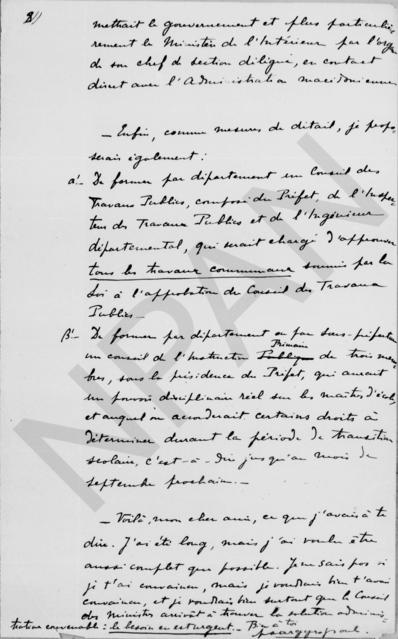 8//
mettrait le gouvernement et plus particuliè-
rement le Ministère de l'Intérieur par l'orga
de son chef de section délégué, en contact
direct avec l'Administration macédonienne
— Enfin, comme mesures de détail, je propo-
serais également :
a'- De former par département un Conseil des
Travaux Publics, composé du Préfet, de l'Inspec-
teur des Travaux Publics et de l'Ingénieur
départemental, qui serait chargé d'approuver
tous les travaux communaux soumis par la
Loi à l'approbation du Conseil des Travaux
Publics –
B'- De former par département ou par sous-préfecture
un conseil de l'Instruction Publique Primaire de trois mem-
bres, sous la présidence du Préfet, qui aurait
un pouvoir disciplinaire réel sur les maîtres d'école
et auquel on accorderait certains droits à
déterminer durant la période de transition
scolaire, c'est-à-dire jusqu'au mois de
septembre prochain. –
— Voilà, mon cher ami, ce que j'avais à te
dire. J'ai été long, mais j'ai voulu être
aussi complet que possible. Je ne sais pas si
je t'ai convaincu, mais je voudrais bien t'avoir
convaincu, et je voudrais bien surtout que le Conseil
des ministres arrivât à trouver la solution adminis-
trative convenable : le besoin en est urgent. – Bien à toi
NPAN